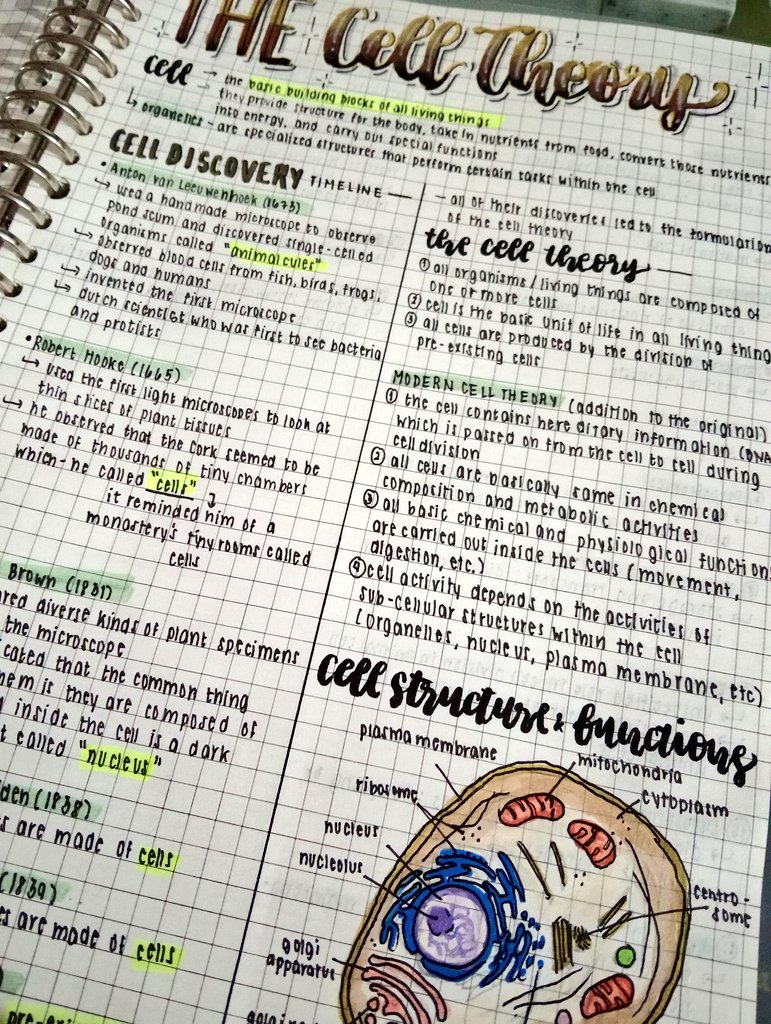 THE Cell Theory
cell → the basic building blocks of all living things
→ they provide structure for the body, take in nutrients from food, convert those nutrients
into energy, and carry out special functions
↳ organelles - are specialized structures that perform certain tasks within the cell
CELL DISCOVERY TIMELINE
• Anton van Leeuwenhoek (1673)
↳ used a handmade microscope to observe
pond scum and discovered single-celled
organisms called "animalcules"
↳ observed blood cells from fish, birds, frogs,
dogs and humans
↳ invented the first microscope
↳ dutch scientist who was first to see bacteria
and protists
• Robert Hooke (1665)
↳ used the first light microscopes to look at
thin slices of plant tissues
↳ he observed that the cork seemed to be
made of thousands of tiny chambers
which-he called "cells"
it reminded him of a
monastery's tiny rooms called
cells
Brown (1831)
diverse kinds of plant specimens
the microscope
that the common thing
is they are composed of
inside the cell is a dark
called "nucleus"
(1838)
are made of cells
(1839)
are made of cells
- all of their discoveries led to the formulation
of the cell theory
the cell theory
① all organisms / living things are composed of
one or more cells
② cell is the basic unit of life in all living thing
③ all cells are produced by the division of
pre-existing cells
MODERN CELL THEORY (addition to the original)
① the cell contains here ditary information (DNA
which is passed on from the cell to cell during
cell division
② all cells are basically same in chemical
composition and metabolic activities
③ all basic chemical and physiological function
are carried out inside the cells (movement,
digestion, etc.)
④ cell activity depends on the activities of
sub-cellular structures within the cell
(organelles, nucleus, plasma membrane, etc)
cell structure & functions
plasma membrane
mitochondria
ribosome
cytoplasm
nucleus
nucleolus
centro-
some
golgi
apparatus